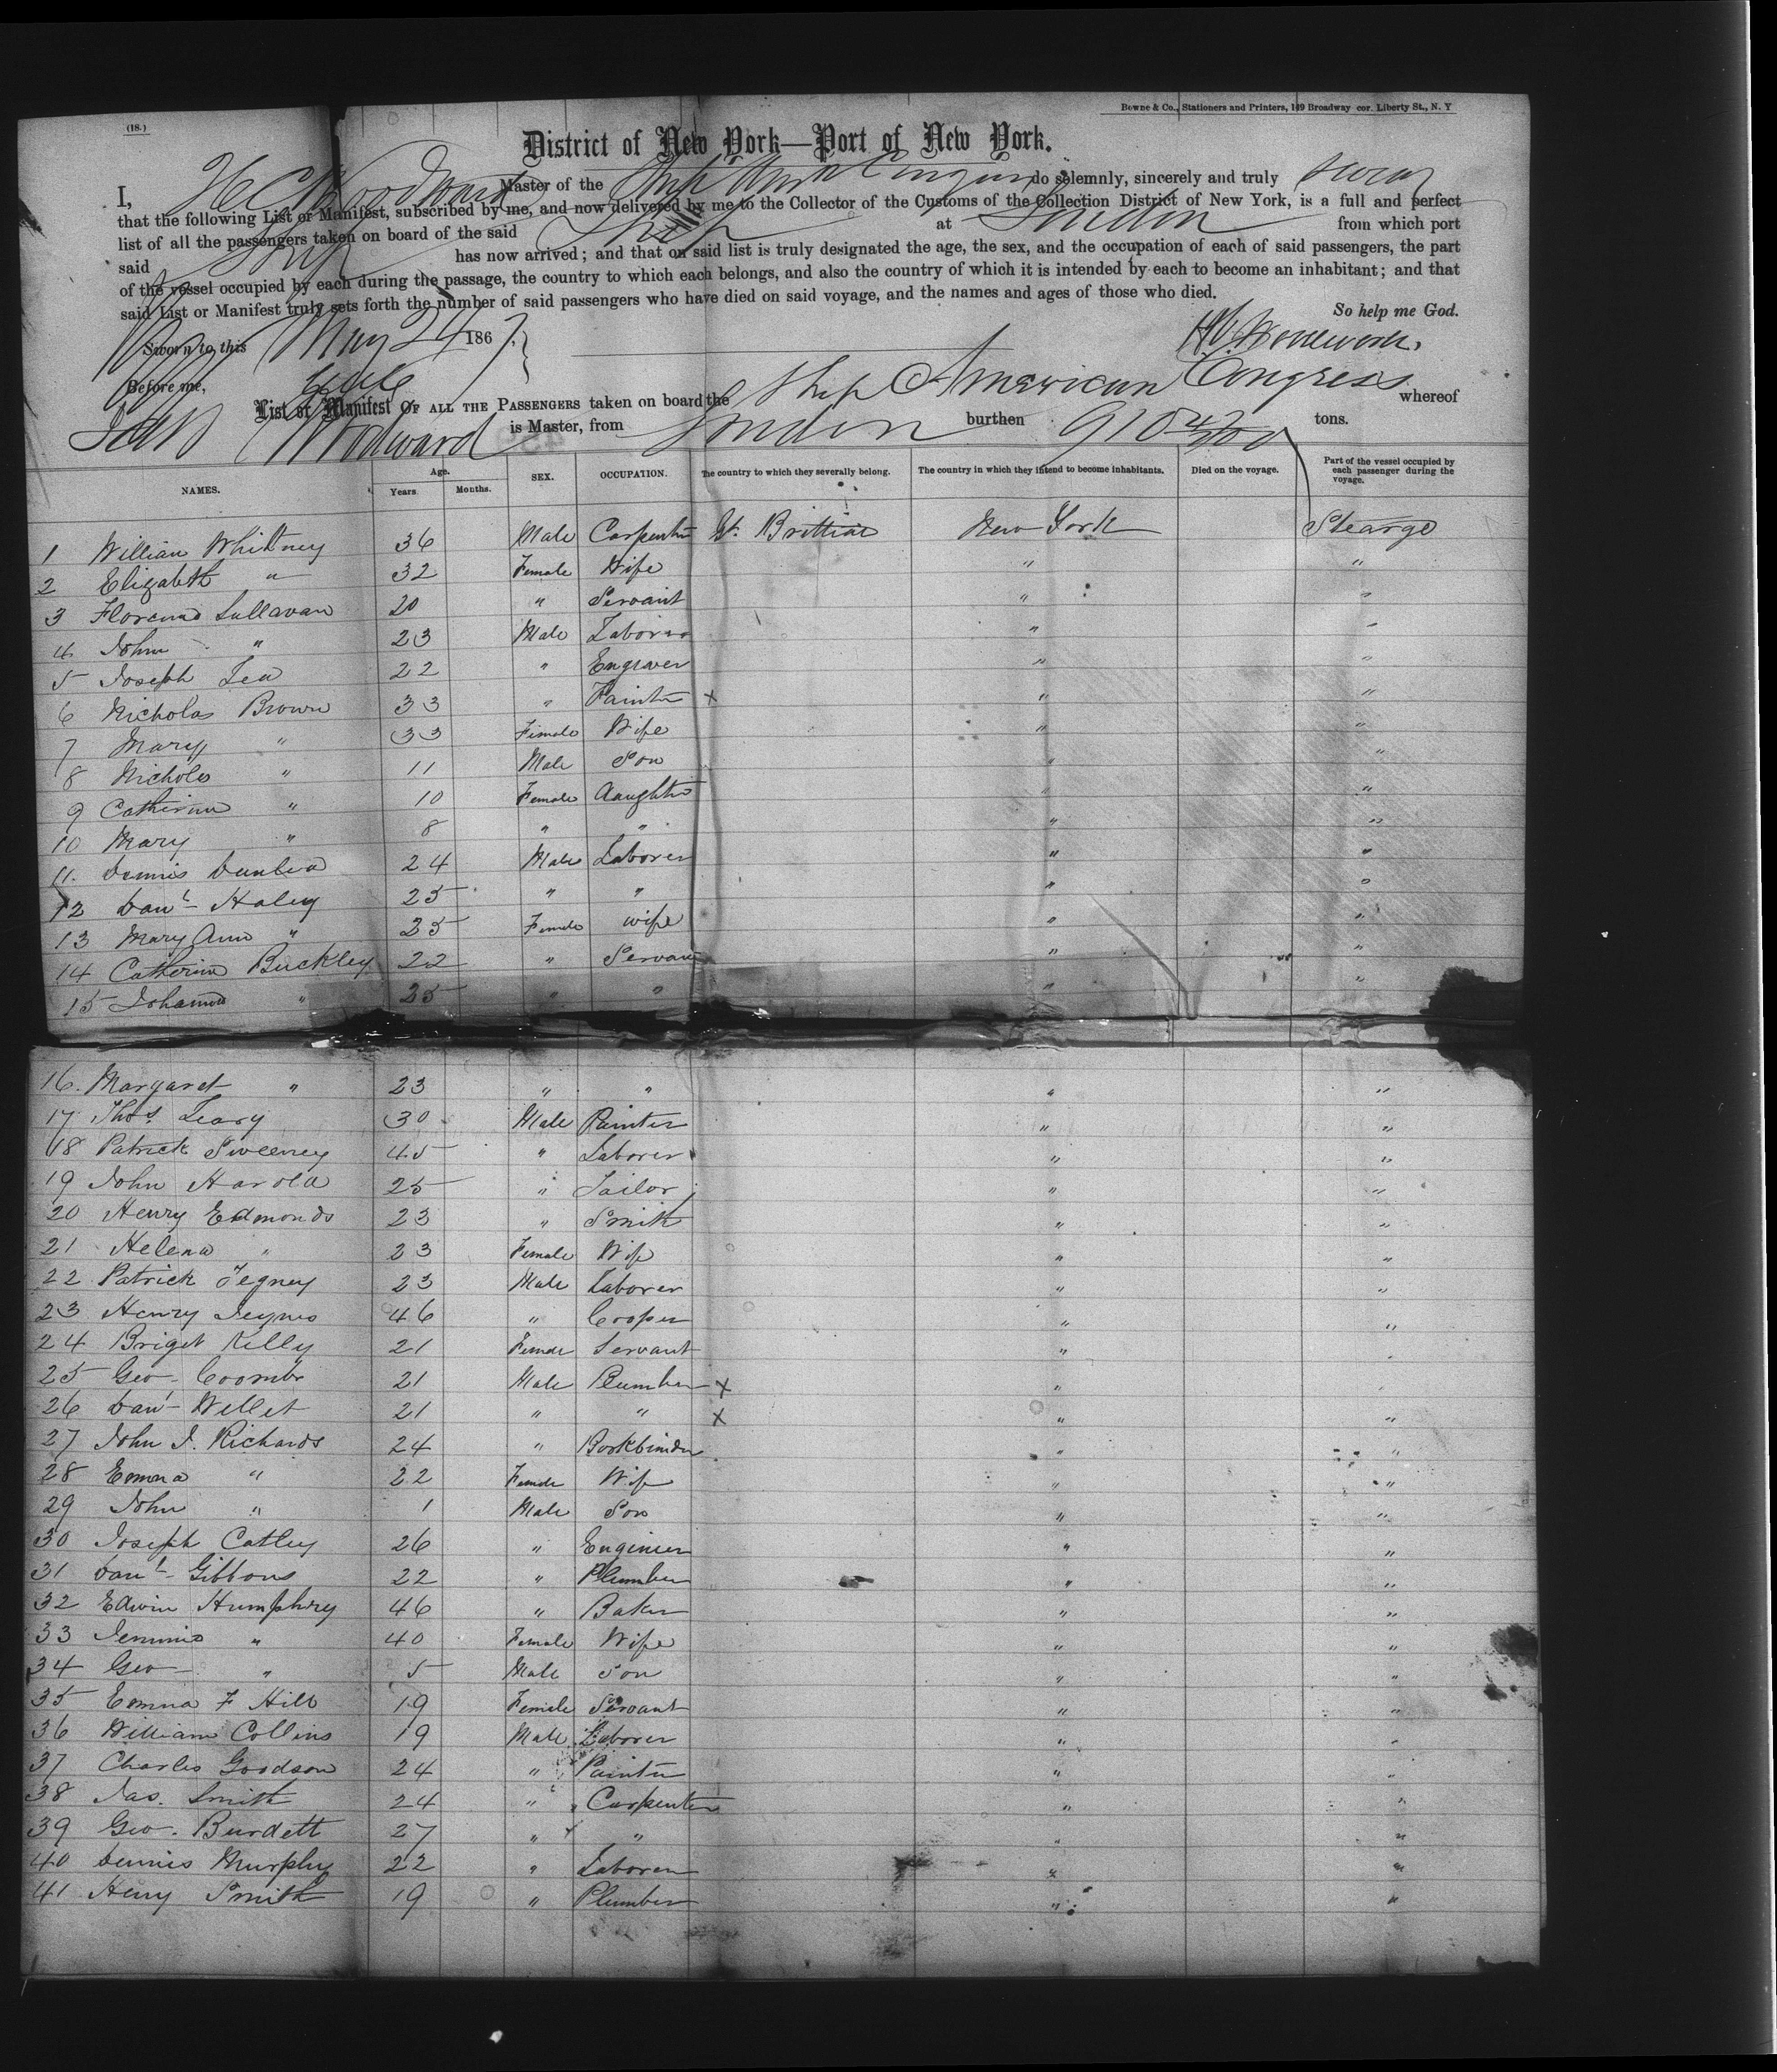 (18.)
Bowne & Co., Stationers and Printers, 149 Broadway cor. Liberty St., N. Y
District of New York—Port of New York.
I, H C Woodward Master of the Ship do solemnly, sincerely and truly swear
that the following List or Manifest, subscribed by me, and now delivered by me to the Collector of the Customs of the Collection District of New York, is a full and perfect
list of all the passengers taken on board of the said Ship at London from which port
said Ship has now arrived; and that on said list is truly designated the age, the sex, and the occupation of each of said passengers, the part
of the vessel occupied by each during the passage, the country to which each belongs, and also the country of which it is intended by each to become an inhabitant; and that
said List or Manifest truly sets forth the number of said passengers who have died on said voyage, and the names and ages of those who died.
So help me God.
Sworn to this May 24 1867
Before me,
List or Manifest OF ALL THE PASSENGERS taken on board the Ship American Congress whereof
Woodward is Master, from London burthen 910 tons.
NAMES. Age. Years. Months. SEX. OCCUPATION. The country to which they severally belong. The country in which they intend to become inhabitants. Died on the voyage. Part of the vessel occupied by each passenger during the voyage.
1 William Whitney 36 Male Carpenter Gt. Brittian New York Stearge
2 Elizabeth " 32 Female Wife " "
3 Sullavan 20 " Servant " "
4 John " 23 Male Laborer " "
5 Joseph Lea 22 " Engraver " "
6 Nicholas Brown 33 " Painter x " "
7 Mary " 33 Female Wife " "
8 Nicholas " 11 Male Son " "
9 Catherine " 10 Female daughter " "
10 Mary " 8 " " " "
11. Dennis 24 Male Laborer " "
12 Danl Haley 25 " " " "
13 Mary Ann " 25 Female wife " "
14 Catherine Buckley 22 " Servant " "
15 Johanna " 25 " " " "
16. Margaret " 23 " " " "
17 Thos. Leary 30 Male Painter " "
18 Patrick Sweeney 45 " Laborer " "
19 John Harold 25 " Tailor " "
20 Henry Edmonds 23 " Smith " "
21 Helena " 23 Female Wife " "
22 Patrick Tegney 23 Male Laborer " "
23 Henry 46 " Cooper " "
24 Briget Kelly 21 Female Servant " "
25 Geo Coombs 21 Male Plumber x " "
26 Danl Willet 21 " " x " "
27 John J. Richards 24 " Bookbinder " "
28 Emma " 22 Female Wife " "
29 John " 1 Male Son " "
30 Joseph Catley 26 " Enginier " "
31 Danl Gibbons 22 " Plumber " "
32 Edwin Humphrey 46 " Baker " "
33 Jemmia " 40 Female Wife " "
34 Geo " 5 Male Son " "
35 Emma F Hill 19 Female Servant " "
36 William Collins 19 Male Laborer " "
37 Charles Goodson 24 " Painter " "
38 Jas. Smith 24 " Carpenter " "
39 Geo. Burdett 27 " " " "
40 Dennis Murphy 22 " Laborer " "
41 Henry Smith 19 " Plumber " "